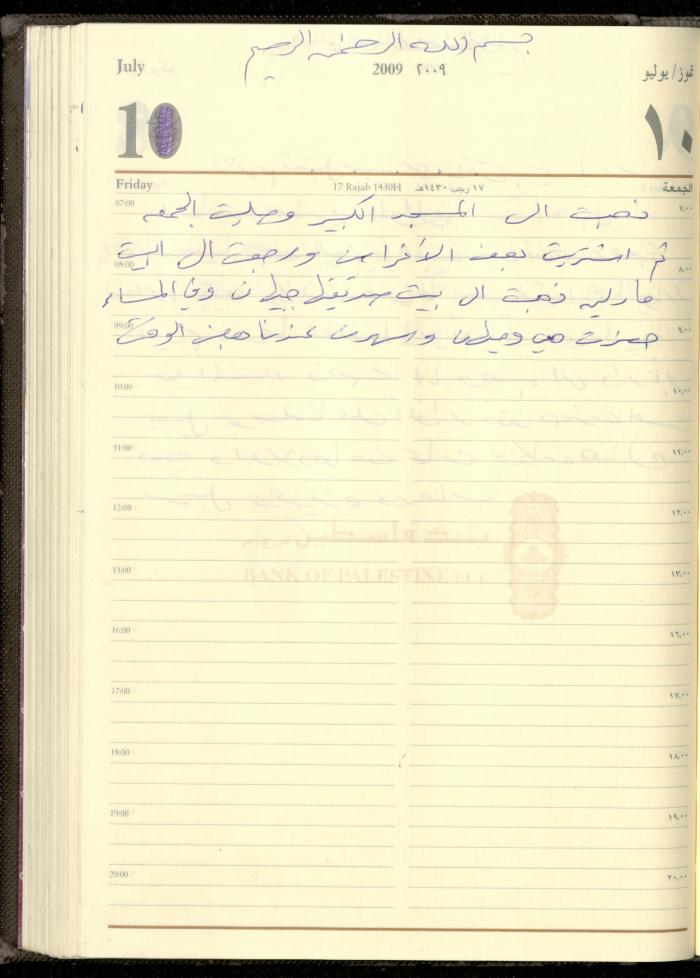 بسم الله الرحمن الرحيم
July 2009 ٢٠٠٩ تموز/ يوليو
10 ١٠
Friday 17 Rajab 1430H ١٧ رجب ١٤٣٠هـ الجمعة
07:00 ذهبت الى المسجد الكبير وصليت الجمعه ٧,٠٠
08:00 ثم اشتريت بعض الأغراض ورجعت الى البيت ٨,٠٠
مارلين ذهبت الى بيت جيلان وفي المساء
09:00 حضرت هي وجيلان وسهرت عندنا بعض الوقت ٩,٠٠
10:00 ١٠,٠٠
11:00 ١١,٠٠
12:00 ١٢,٠٠
بنك فلسطين
BANK OF PALESTINE P.L.C
13:00 ١٣,٠٠
16:00 ١٦,٠٠
17:00 ١٧,٠٠
18:00 ١٨,٠٠
19:00 ١٩,٠٠
20:00 ٢٠,٠٠